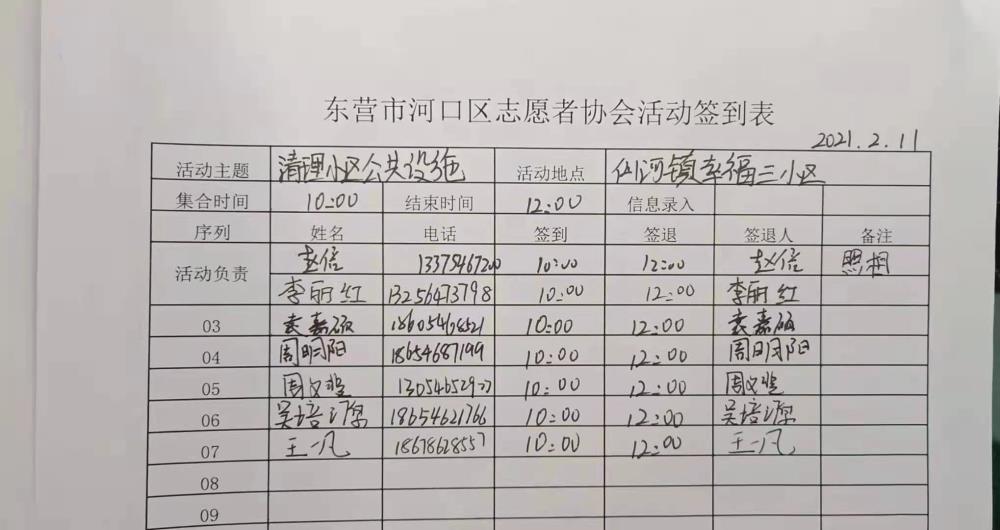 东营市河口区志愿者协会活动签到表
2021.2.11
活动主题 清理小区公共设施 活动地点 仙河镇幸福三小区
集合时间 10:00 结束时间 12:00 信息录入
序列 姓名 电话 签到 签退 签退人 备注
活动负责 赵倍 13375467200 10:00 12:00 赵倍 照相
李丽红 13256473798 10:00 12:00 李丽红
03 袁嘉硕 10:00 12:00 袁嘉硕
04 周明阳 18654687199 10:00 12:00 周明阳
05 10:00 12:00
06 吴培源 18654621766 10:00 12:00 吴培源
07 王一凡 18678628557 10:00 12:00 王一凡
08
09